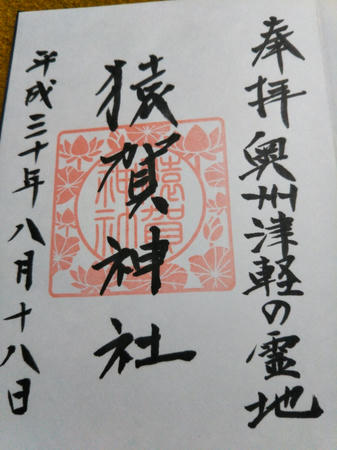 奉拝 奥州津軽の霊地
猿賀神社
平成三十年八月十八日
猿賀
神社